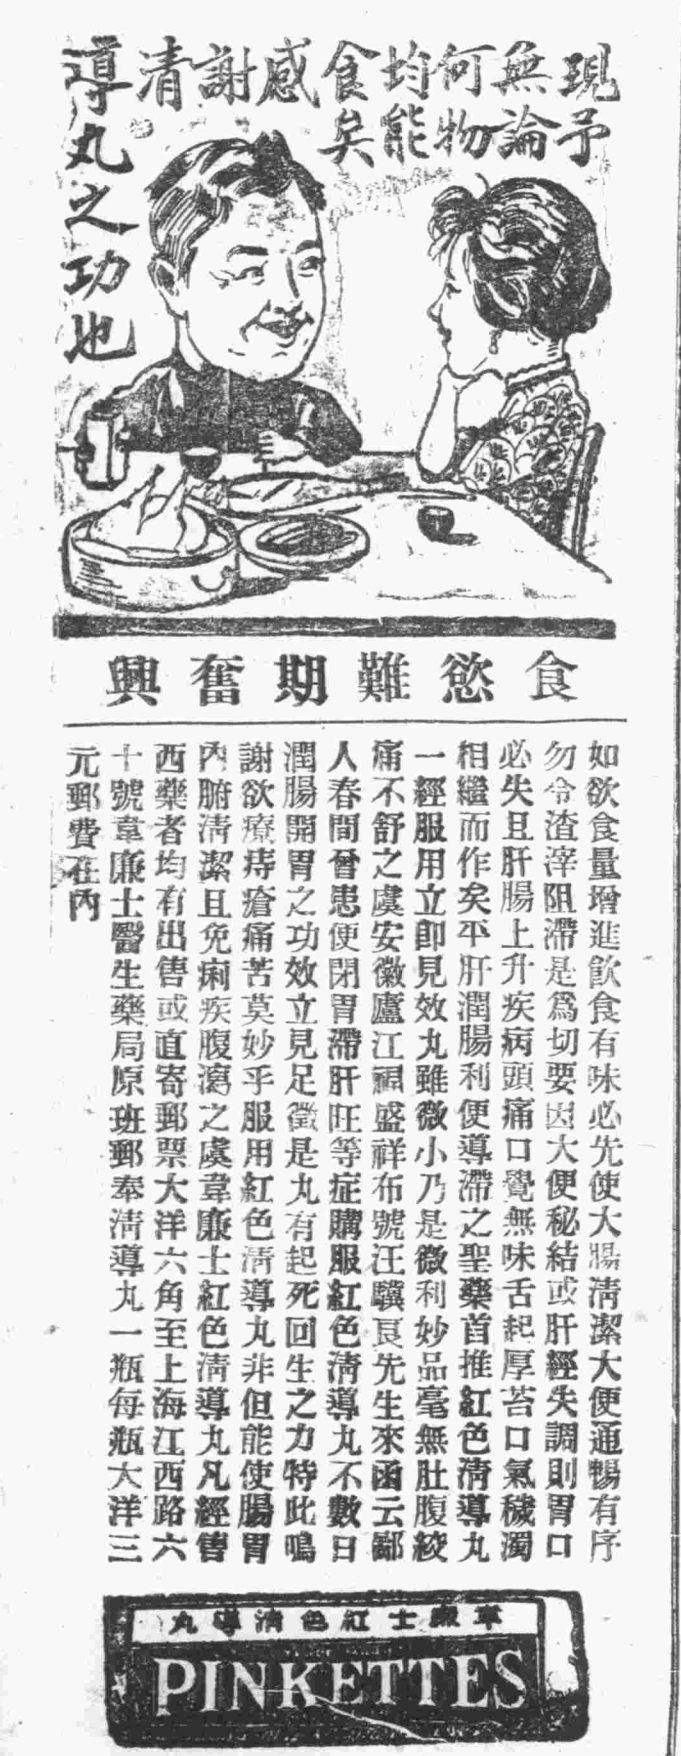 現予
無論
何物
均能
食矣
感
謝
清
導丸之功也
食慾難期奮興
如欲食量增進飲食有味必先使大腸清潔大便通暢有序
勿令渣滓阻滯是爲切要因大便秘結或肝經失調則胃口
必失且肝腸上升疾病頭痛口覺無味舌起厚苔口氣穢濁
相繼而作矣平肝潤腸利便導滯之聖藥首推紅色清導丸
一經服用立卽見效丸雖微小乃是微利妙品毫無肚腹絞
痛不舒之虞安徽廬江福盛祥布號汪驥良先生來函云鄙
人春間曾患便閉胃滯肝旺等症購服紅色清導丸不數日
潤腸開胃之功效立見足徵是丸有起死回生之力特此鳴
謝欲療痔瘡痛苦莫妙乎服用紅色清導丸非但能使腸胃
內腑清潔且免痢疾腹瀉之虞韋廉士紅色清導丸凡經售
西藥者均有出售或直寄郵票大洋六角至上海江西路六
十號韋廉士醫生藥局原班郵奉清導丸一瓶每瓶大洋三
元郵費在內
韋廉士紅色清導丸
PINKETTES